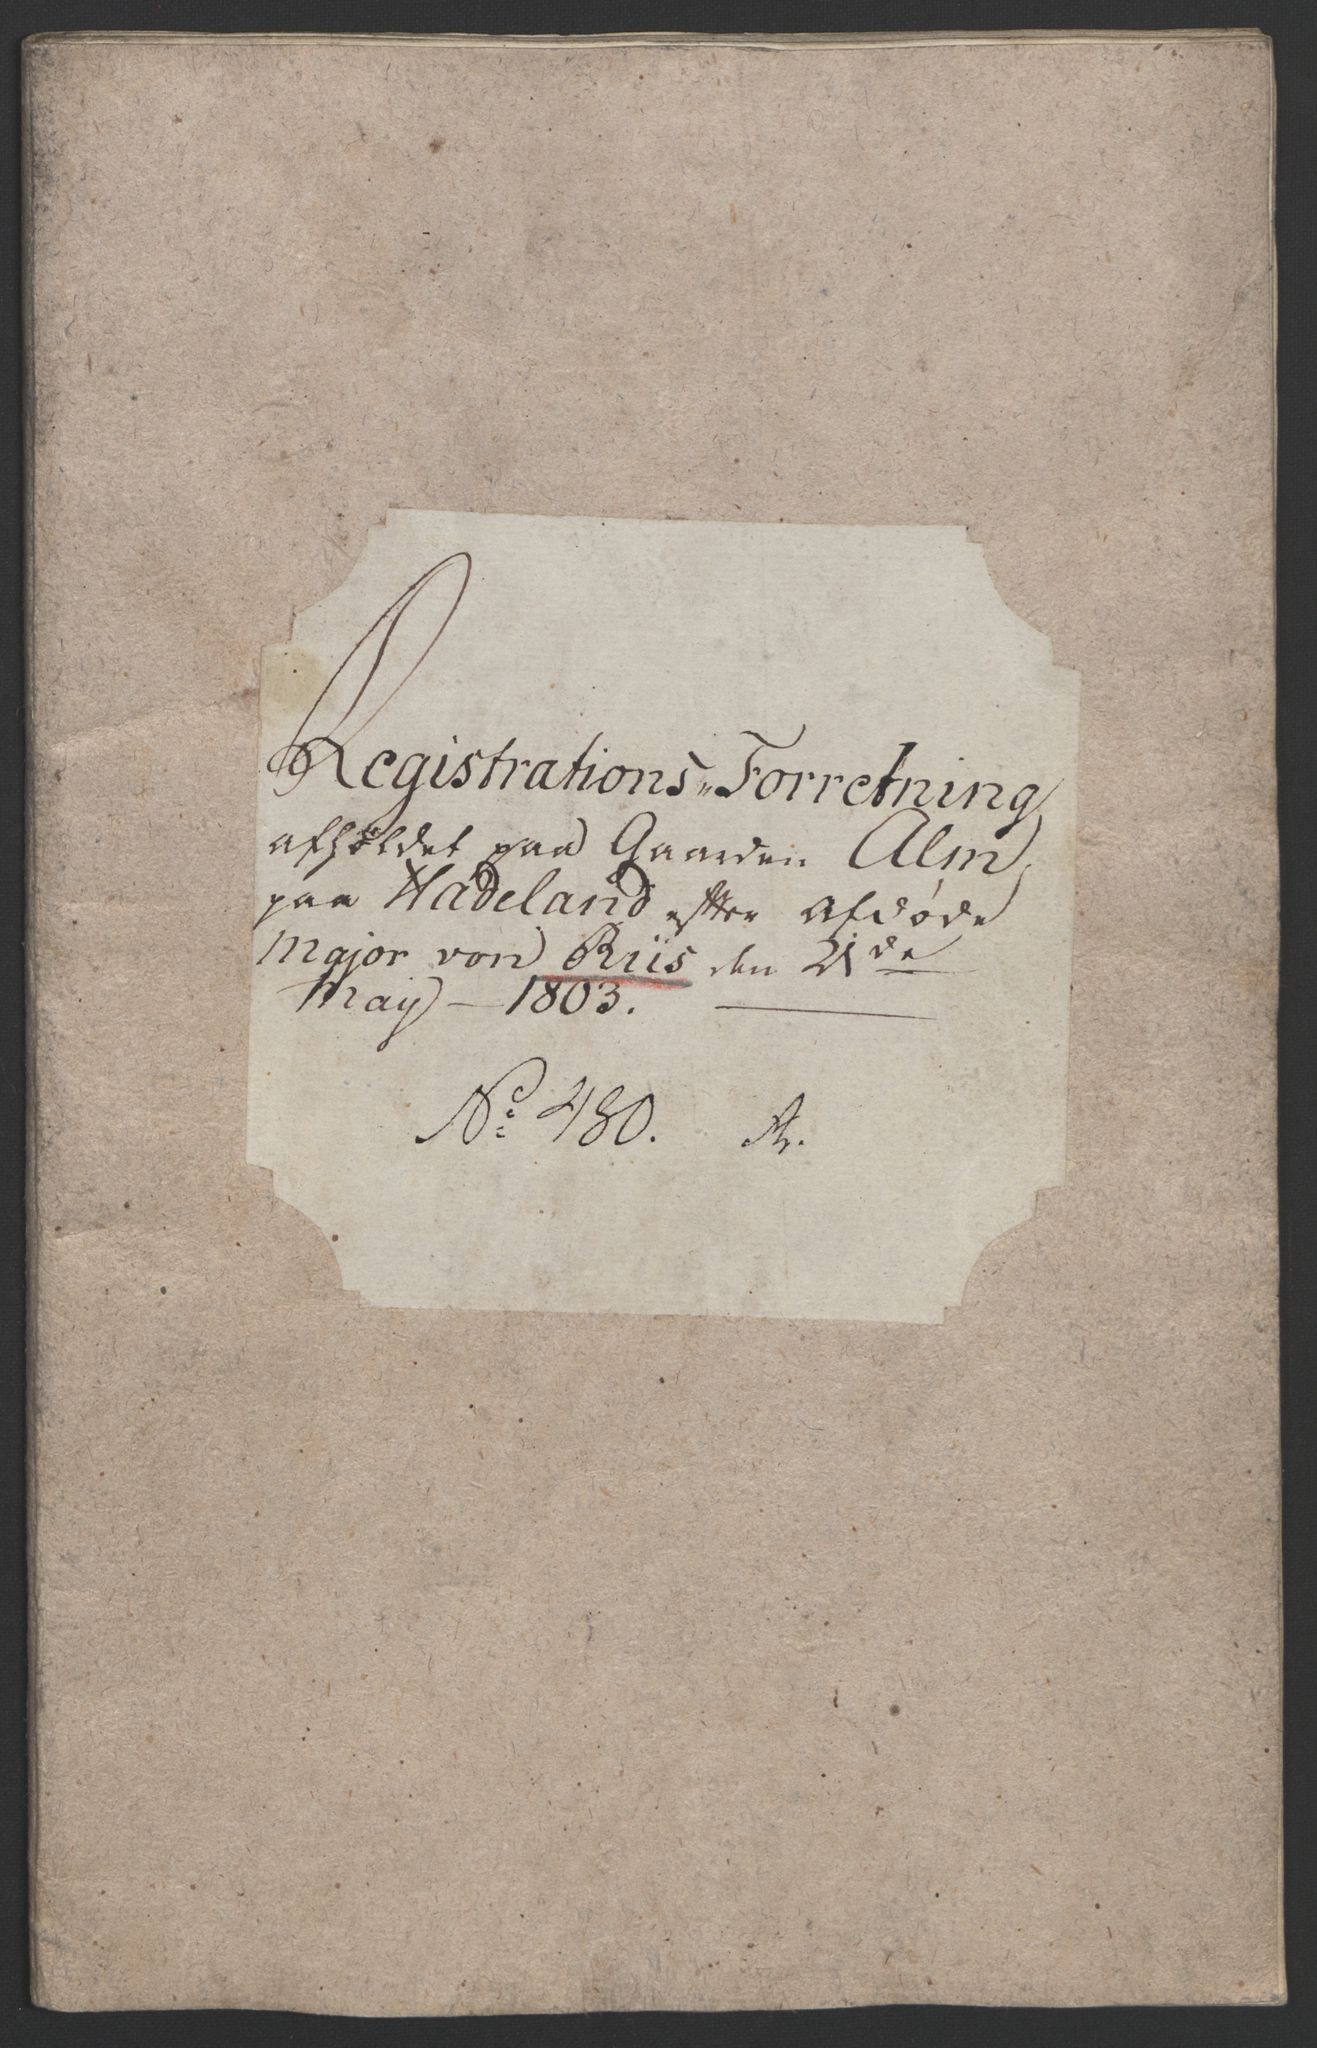 Registrations-Forretning
afholdet paa Gaarden Alm
paa Hadeland efter afdøde
Major von Riis den 21de
May - 1803.
No: 480.